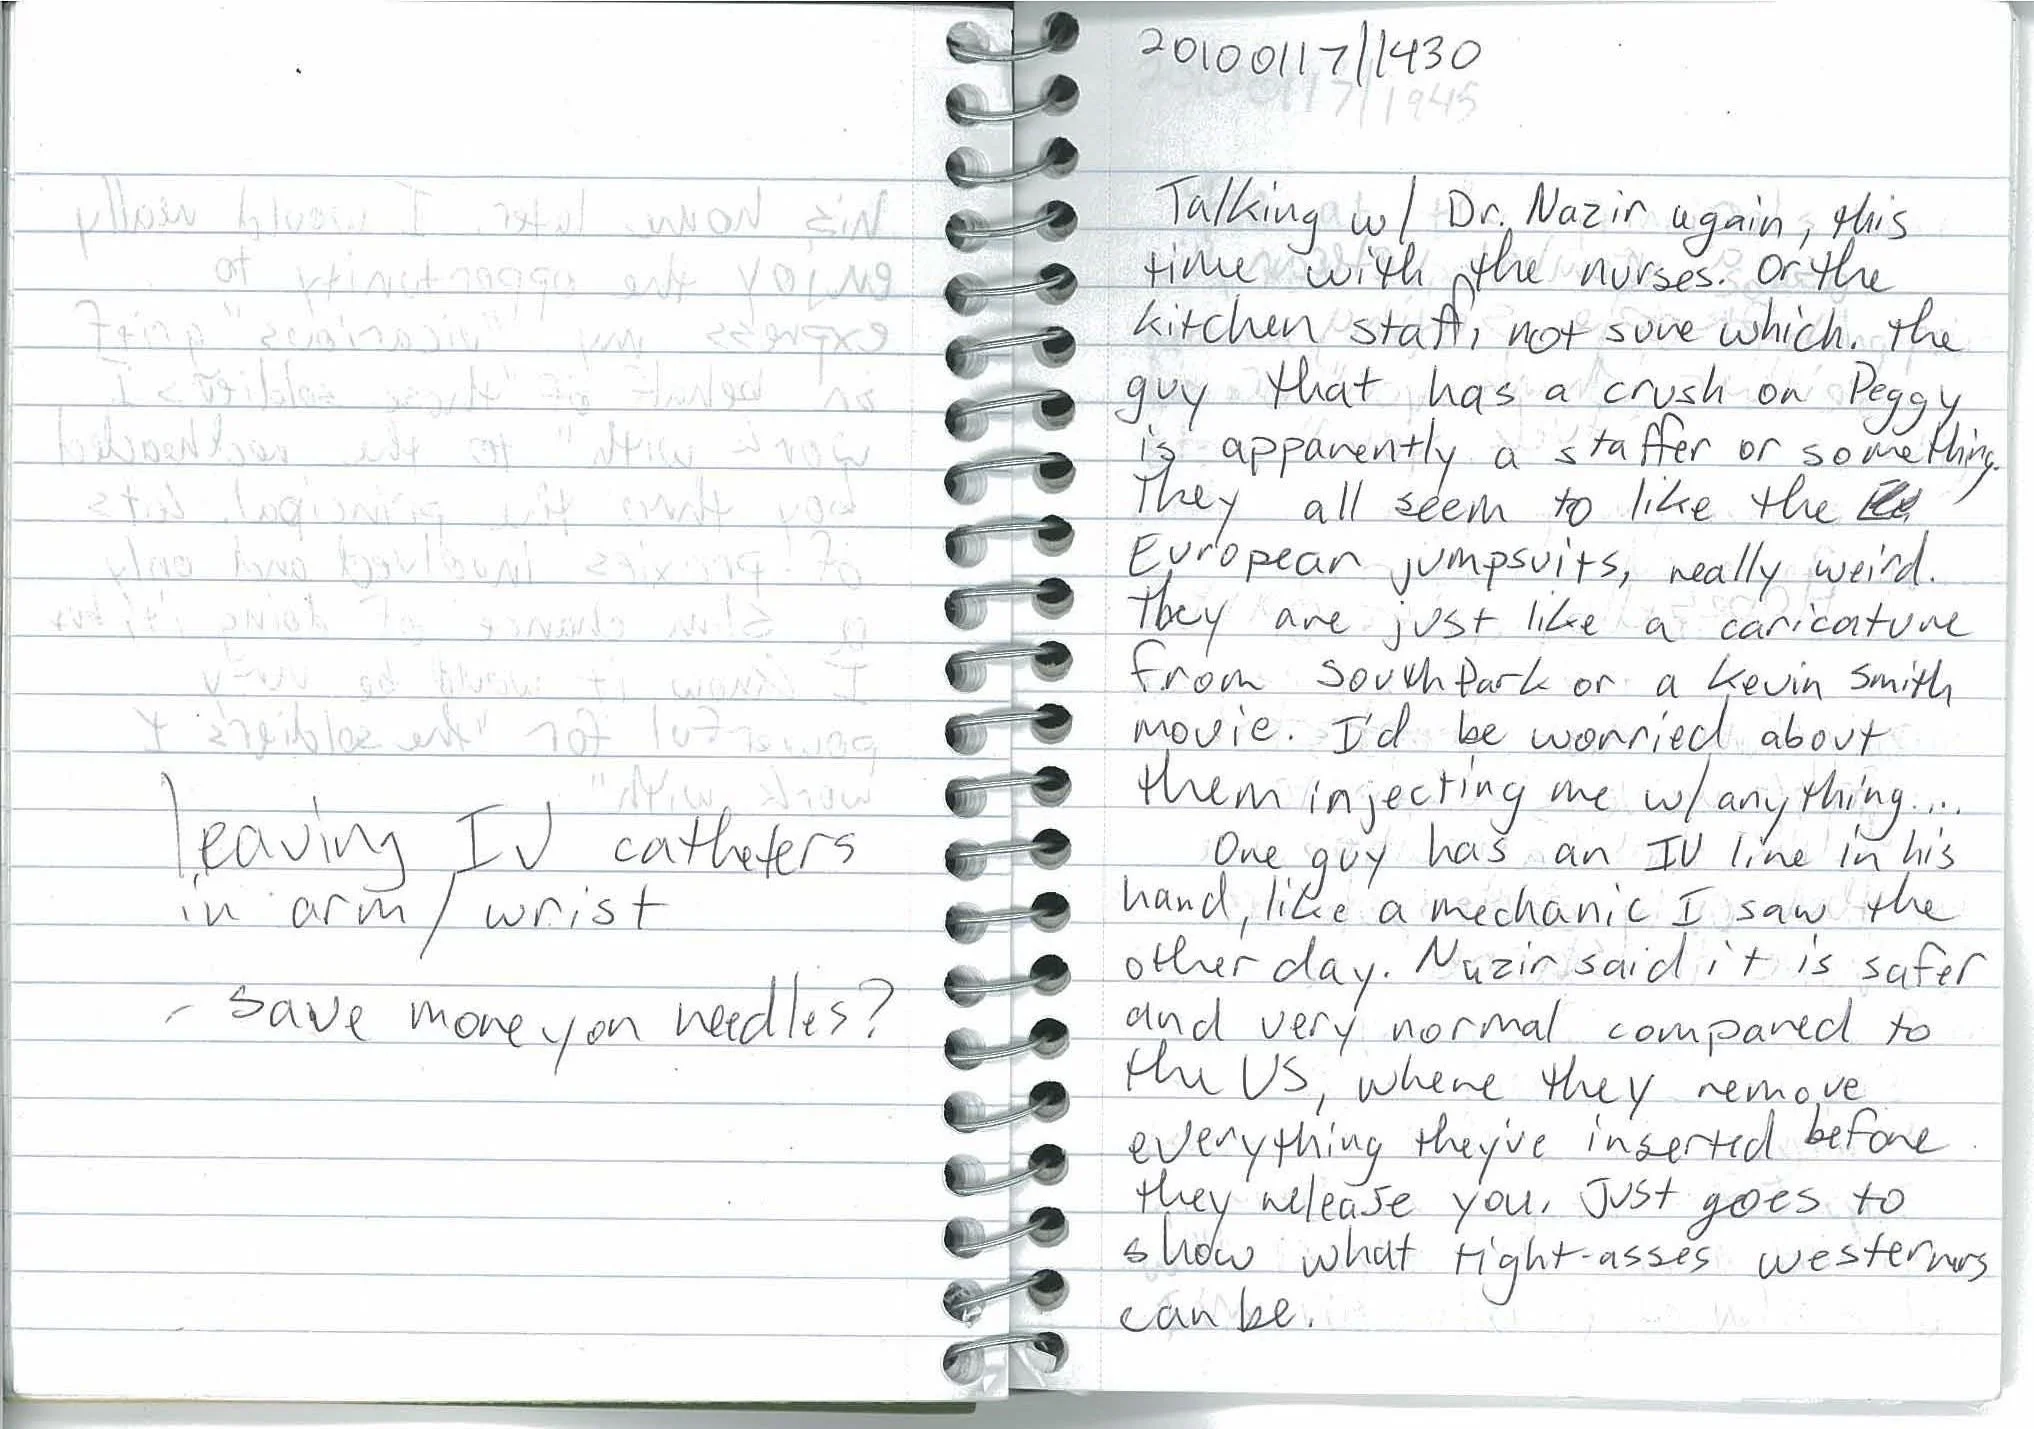 leaving IV catheters
in arm/wrist
- save money on needles?
20100117/1430
20100117/1945
Talking w/ Dr. Nazir again, this
time with the nurses. Or the
kitchen staff, not sure which. The
guy that has a crush on Peggy
is apparently a staffer or something.
They all seem to like the
European jumpsuits, really weird.
They are just like a caricature
from SouthPark or a Kevin Smith
movie. I'd be worried about
them injecting me w/ anything...
One guy has an IV line in his
hand, like a mechanic I saw the
other day. Nazir said it is safer
and very normal compared to
the US, where they remove
everything they've inserted before
they release you. Just goes to
show what tight-asses westerners
can be.